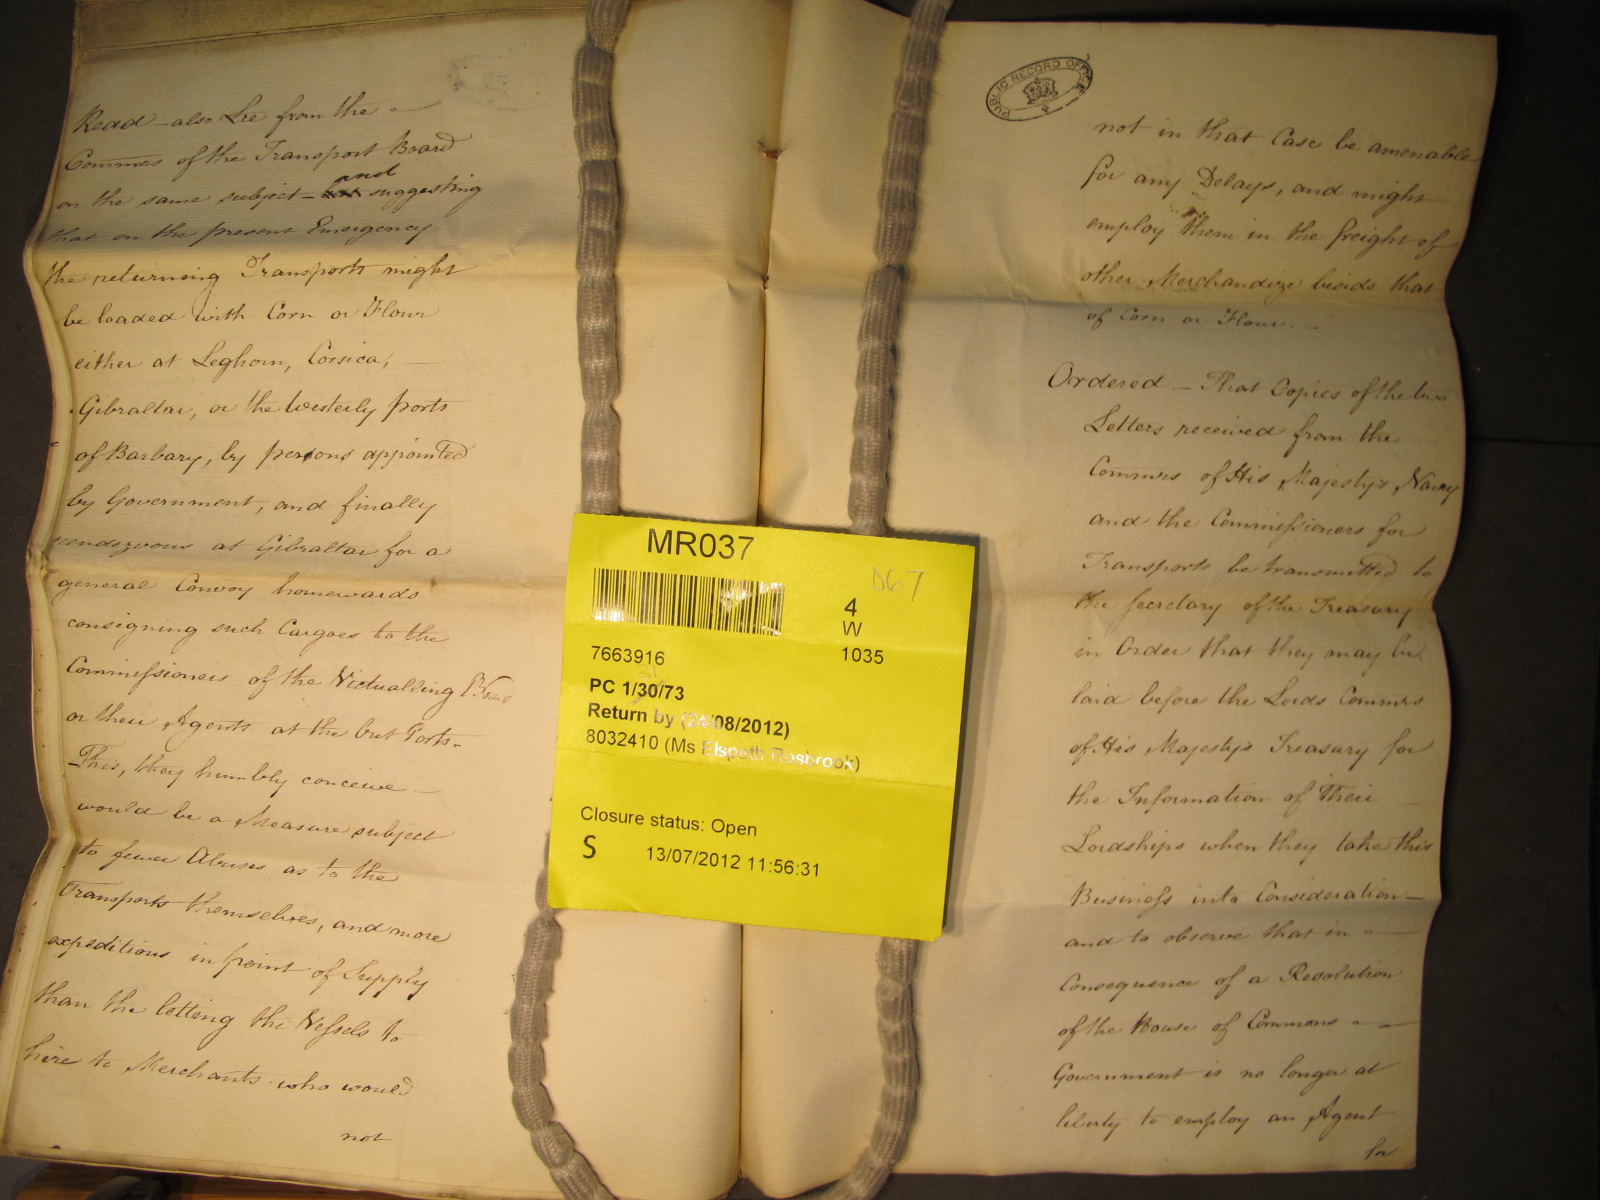 Read also Lre from the
Commrs of the Transport Board
and
on the same subject – but suggesting
that on the present Emergency
the returning Transports might
be loaded with Corn or Flour
either at Leghorn, Corsica,
Gibraltar, or the Westerly ports
of Barbary, by persons appointed
by Government, and finally
rendezvous at Gibraltar for a
general Convoy homewards
consigning such Cargoes to the
Commissioners of the Victualling
or their Agents at the but Ports.
This, they humbly conceive
would be a Measure subject
to fewer Abuses as to the
Transports themselves, and more
expeditious in point of Supply
than the letting the Vessels to
hire to Merchants who would
not
PUBLIC RECORD OFFICE
not in that Case be amenable
for any Delays, and might
employ them in the freight of
other Merchandize beside that
of Corn or Flour.
Ordered – That Copies of the two
Letters received from the
Commrs of His Majesty's Navy
and the Commissioners for
Transports be transmitted to
the Secretary of the Treasury
in Order that they may be
laid before the Lords Commrs
of His Majesty's Treasury for
the Information of Their
Lordships when they take this
Business into Consideration
and to observe that in
Consequence of a Resolution
of the House of Commons
Government is no longer at
liberty to employ an Agent
for
MR037
067
4
W
7663916
1035
PC 1/30/73
Return by (24/08/2012)
8032410 (Ms Elspeth Rosbrook)
Closure status: Open
S 13/07/2012 11:56:31